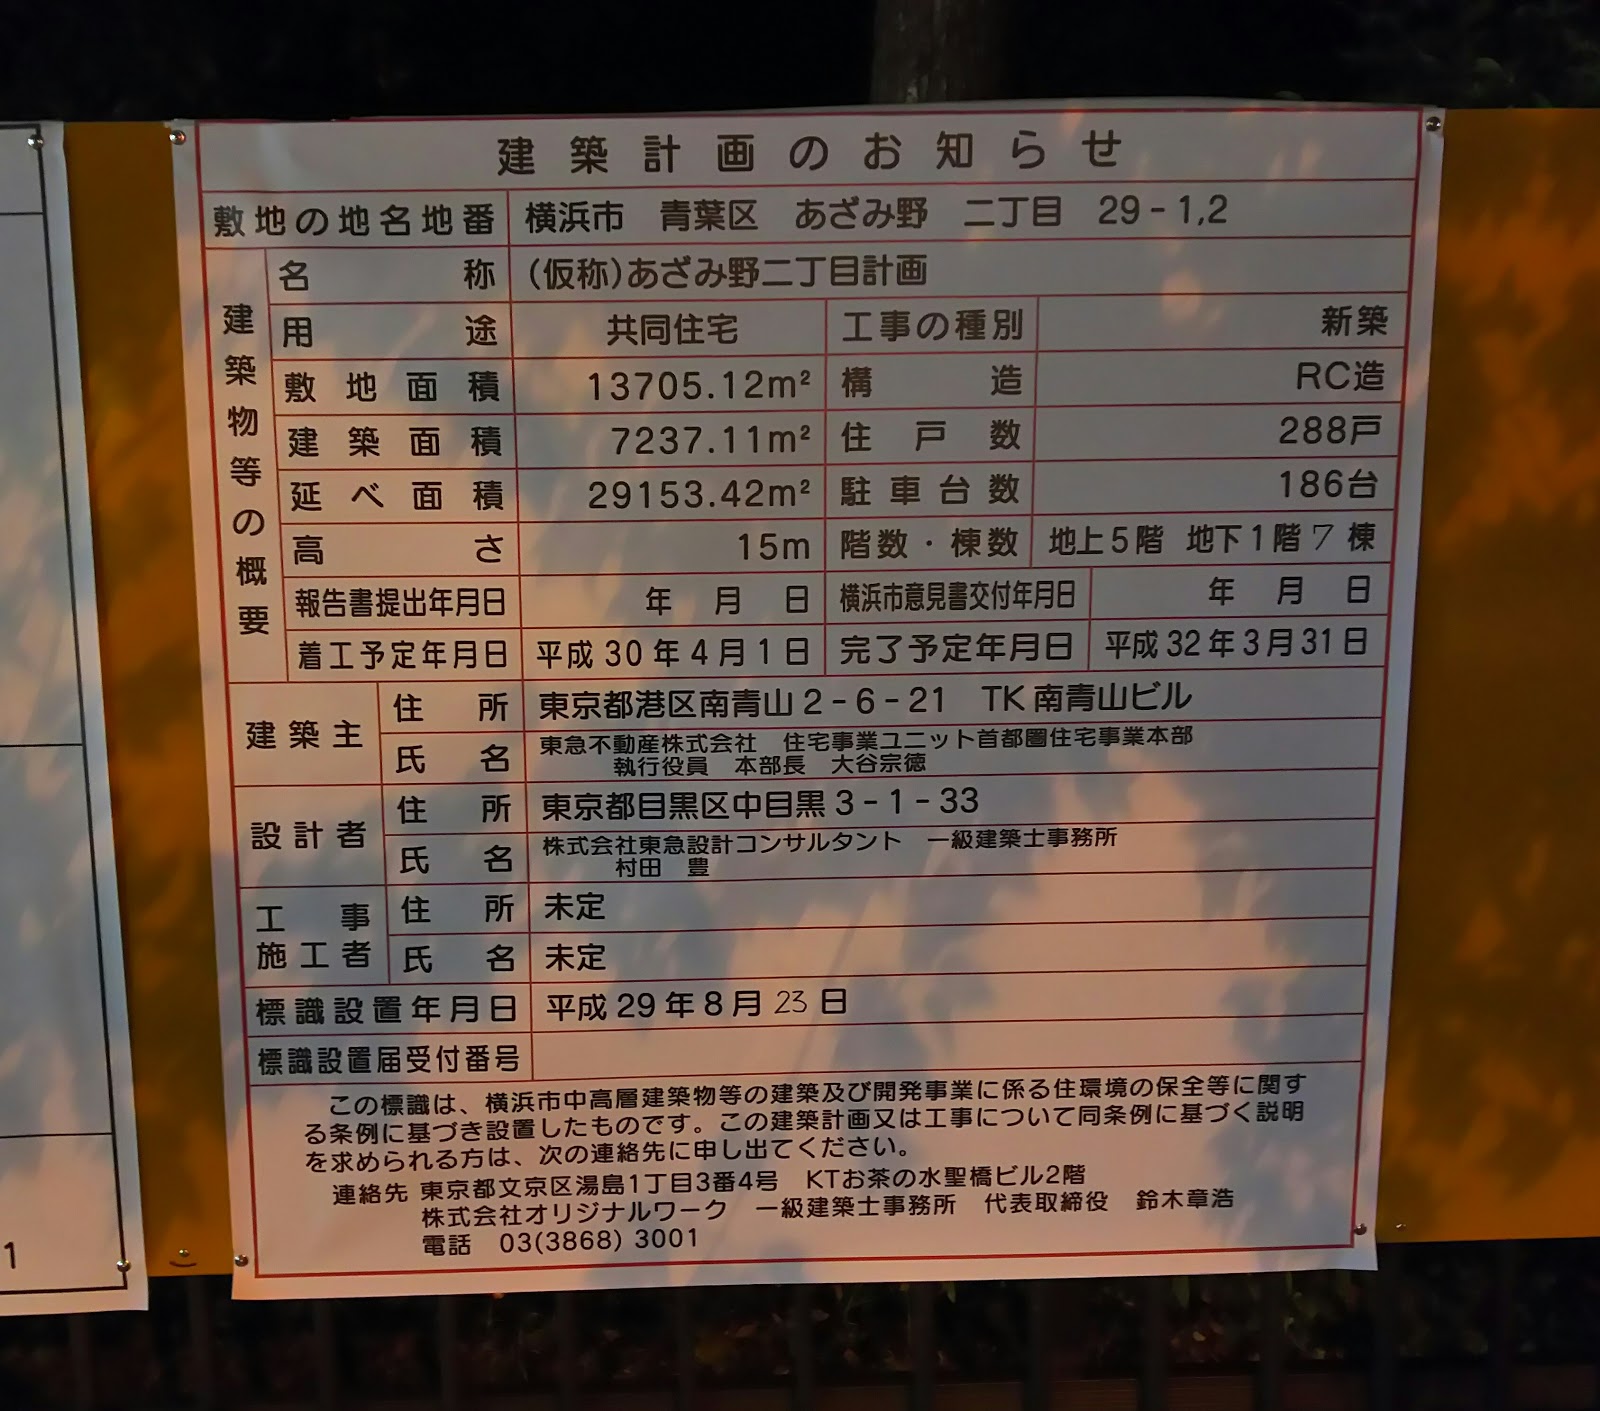 建築計画のお知らせ
敷地の地名地番 横浜市 青葉区 あざみ野 二丁目 29-1,2
建築物等の概要
名称 (仮称)あざみ野二丁目計画
用途 共同住宅 工事の種別 新築
敷地面積 13705.12m² 構造 RC造
建築面積 7237.11m² 住戸数 288戸
延べ面積 29153.42m² 駐車台数 186台
高さ 15m 階数・棟数 地上5階 地下1階 7 棟
報告書提出年月日 年 月 日 横浜市意見書交付年月日 年 月 日
着工予定年月日 平成30年4月1日 完了予定年月日 平成32年3月31日
建築主 住所 東京都港区南青山2-6-21 TK南青山ビル
氏名 東急不動産株式会社 住宅事業ユニット首都圏住宅事業本部
執行役員 本部長 大谷宗徳
設計者 住所 東京都目黒区中目黒3-1-33
氏名 株式会社東急設計コンサルタント 一級建築士事務所
村田 豊
工事施工者 住所 未定
氏名 未定
標識設置年月日 平成29年8月23日
標識設置届受付番号
この標識は、横浜市中高層建築物等の建築及び開発事業に係る住環境の保全等に関す
る条例に基づき設置したものです。この建築計画又は工事について同条例に基づく説明
を求められる方は、次の連絡先に申し出てください。
連絡先 東京都文京区湯島1丁目3番4号 KTお茶の水聖橋ビル2階
株式会社オリジナルワーク 一級建築士事務所 代表取締役 鈴木章浩
電話 03(3868) 3001
1